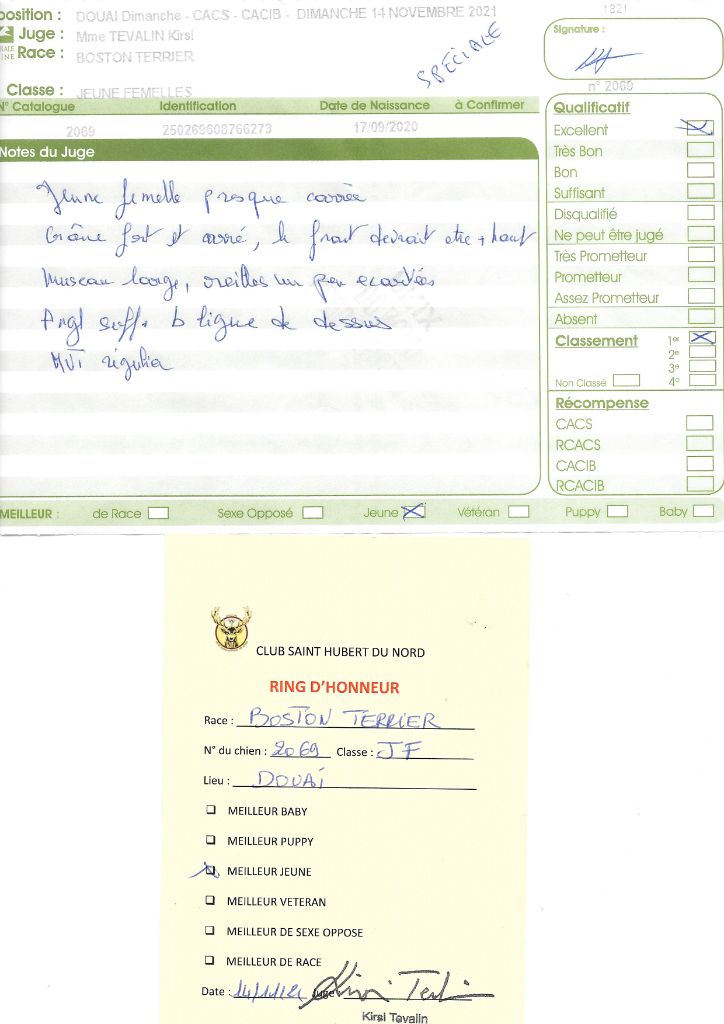 position : DOUAI Dimanche - CACS - CACIB - DIMANCHE 14 NOVEMBRE 2021
Juge : Mme TEVALIN Kirsi
Race : BOSTON TERRIER
SPÉCIALE
Classe : JEUNE FEMELLES
1821
Signature :
n° 2069
N° Catalogue Identification Date de Naissance à Confirmer
2069 250269608766273 17/09/2020
Notes du Juge
Jeune femelle presque carrée
Crâne fort et carré, le front devrait etre + haut
Museau large, oreilles un peu ecartées
Angl suff. b ligne de dessus
MVT régulier
Qualificatif
Excellent
Très Bon
Bon
Suffisant
Disqualifié
Ne peut être jugé
Très Prometteur
Prometteur
Assez Prometteur
Absent
Classement 1er
2e
3e
Non Classé 4e
Récompense
CACS
RCACS
CACIB
RCACIB
MEILLEUR : de Race Sexe Opposé Jeune Vétéran Puppy Baby
CLUB SAINT HUBERT DU NORD
RING D'HONNEUR
Race : BOSTON TERRIER
N° du chien : 2069 Classe : JF
Lieu : DOUAI
MEILLEUR BABY
MEILLEUR PUPPY
MEILLEUR JEUNE
MEILLEUR VETERAN
MEILLEUR DE SEXE OPPOSE
MEILLEUR DE RACE
Date : 14/11/21 Juge :
Kirsi Tevalin